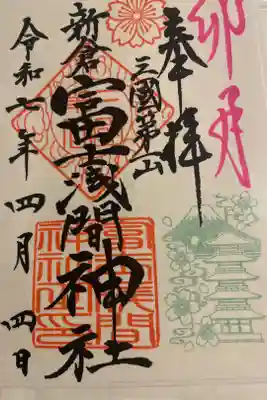 卯月
奉拝
三國第一山
新倉
富士浅間神社
令和七年四月四日